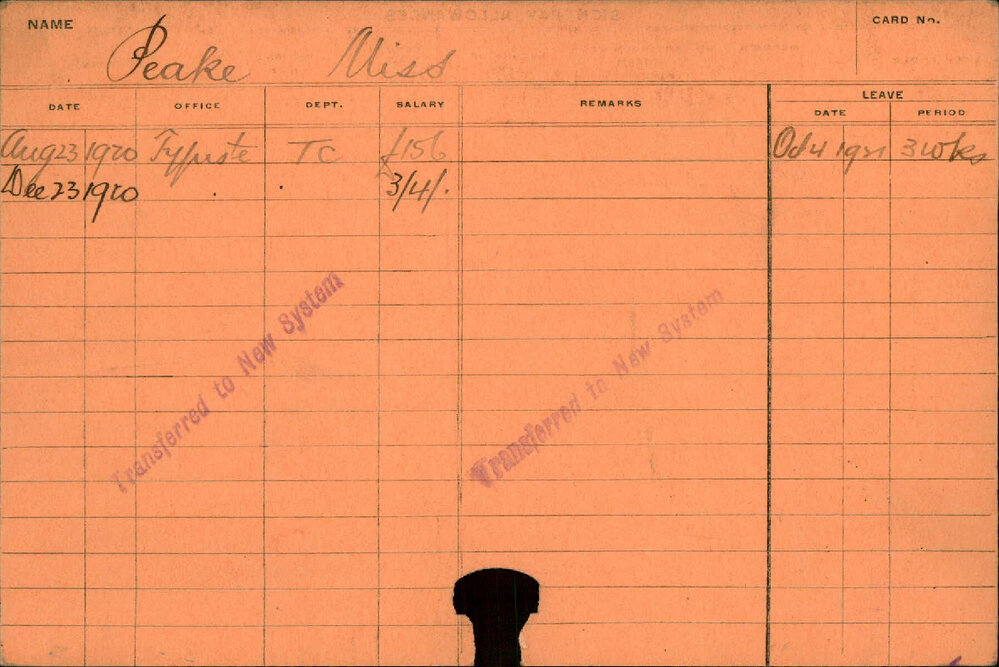 NAME Peake Miss CARD No.
DATE OFFICE DEPT. SALARY REMARKS LEAVE
DATE PERIOD
Aug 23 1920 Typiste TC £156 Oct 4 1921 3 wks
Dec 23 1920 . . 3/4/.
Transferred to New System
Transferred to New System